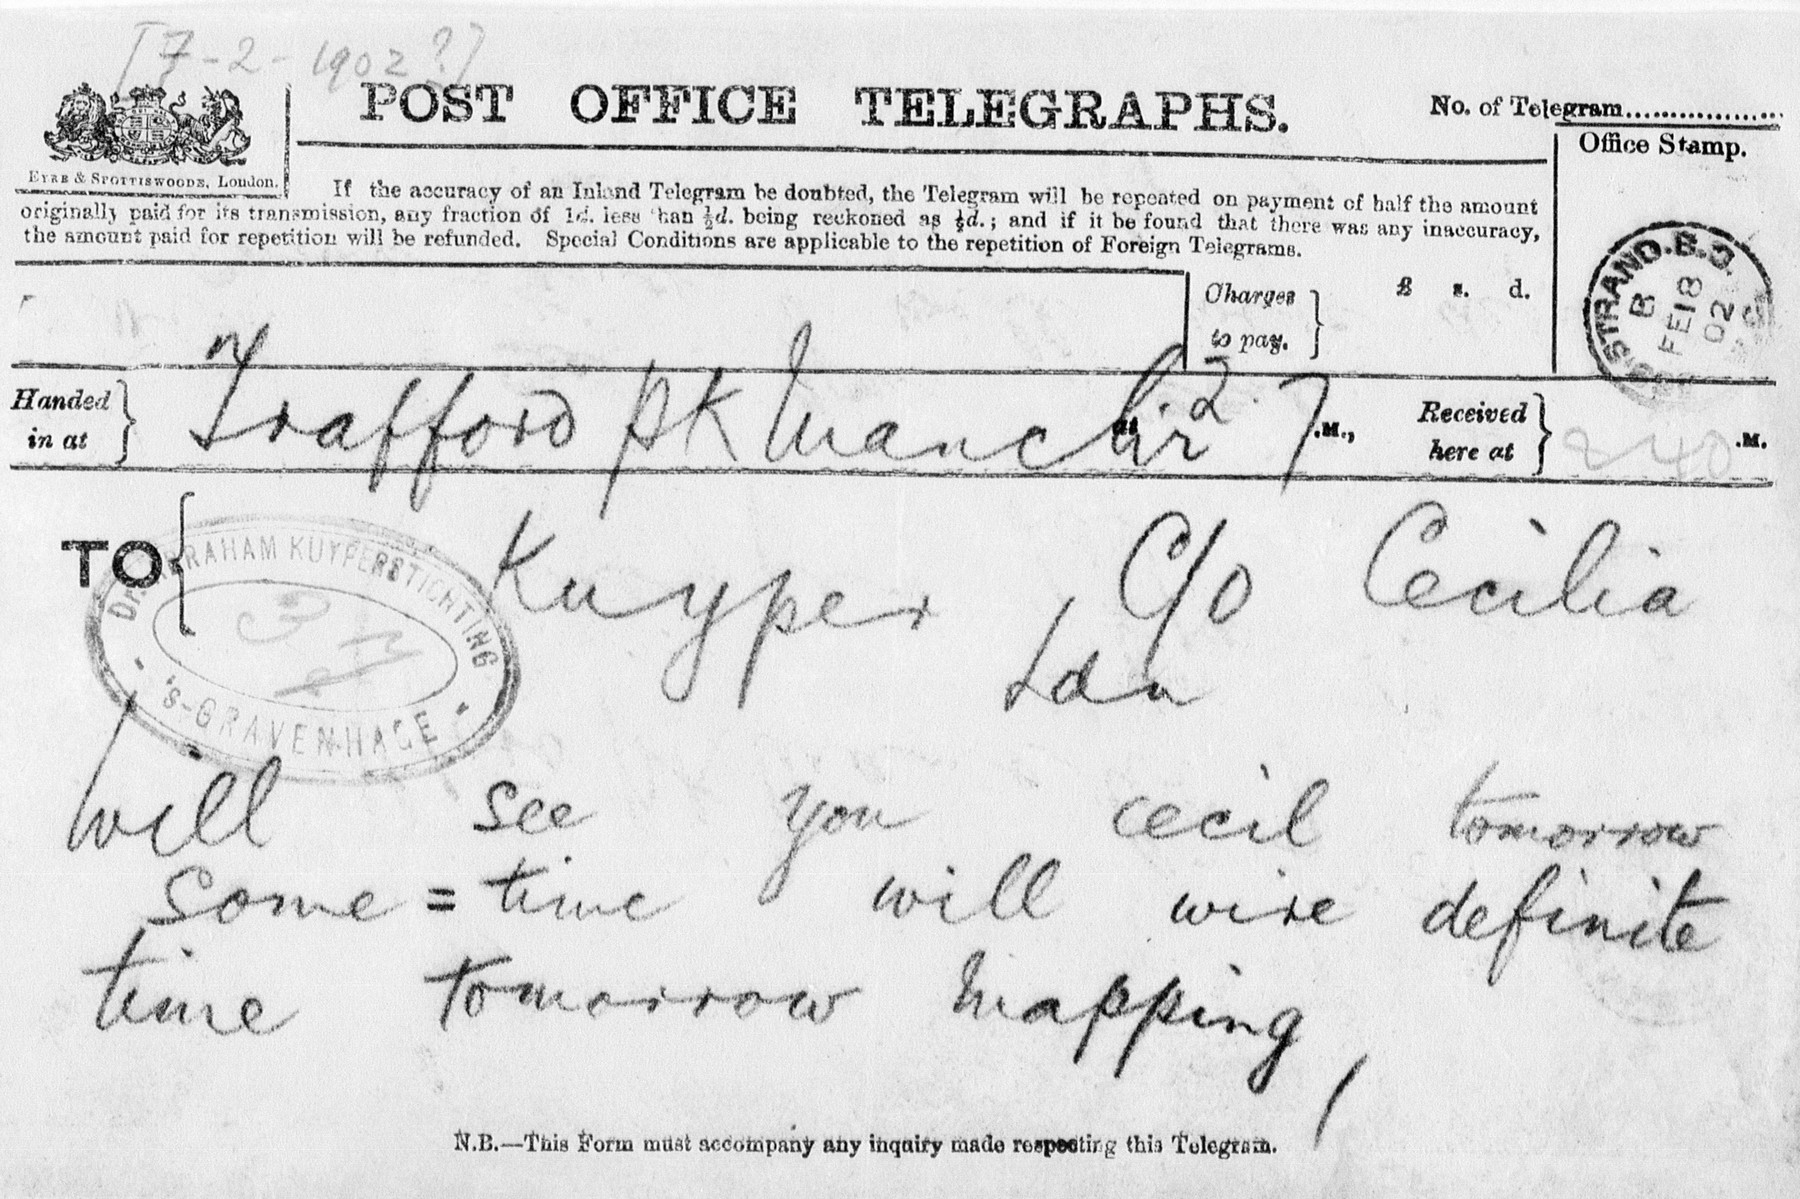 [7-2-1902?]
POST OFFICE TELEGRAPHS.
No. of Telegram
Office Stamp.
EYRE & SPOTTISWOODE, London.
If the accuracy of an Inland Telegram be doubted, the Telegram will be repeated on payment of half the amount
originally paid for its transmission, any fraction of 1d. less than ½d. being reckoned as ½d.; and if it be found that there was any inaccuracy,
the amount paid for repetition will be refunded. Special Conditions are applicable to the repetition of Foreign Telegrams.
STRAND. B.O.
B
FE 18
02
Charges to pay. } £ s. d.
Handed in at } Trafford pk Manchr at 2.7 .M., Received here at } 240 .M.
TO { Kuyper c/o Cecilia
Ldn
Dr. ABRAHAM KUYPERSTICHTING
'S-GRAVENHAGE
Will see you cecil tomorrow
some = time will wire definite
time tomorrow Mapping
N.B.—This Form must accompany any inquiry made respecting this Telegram.